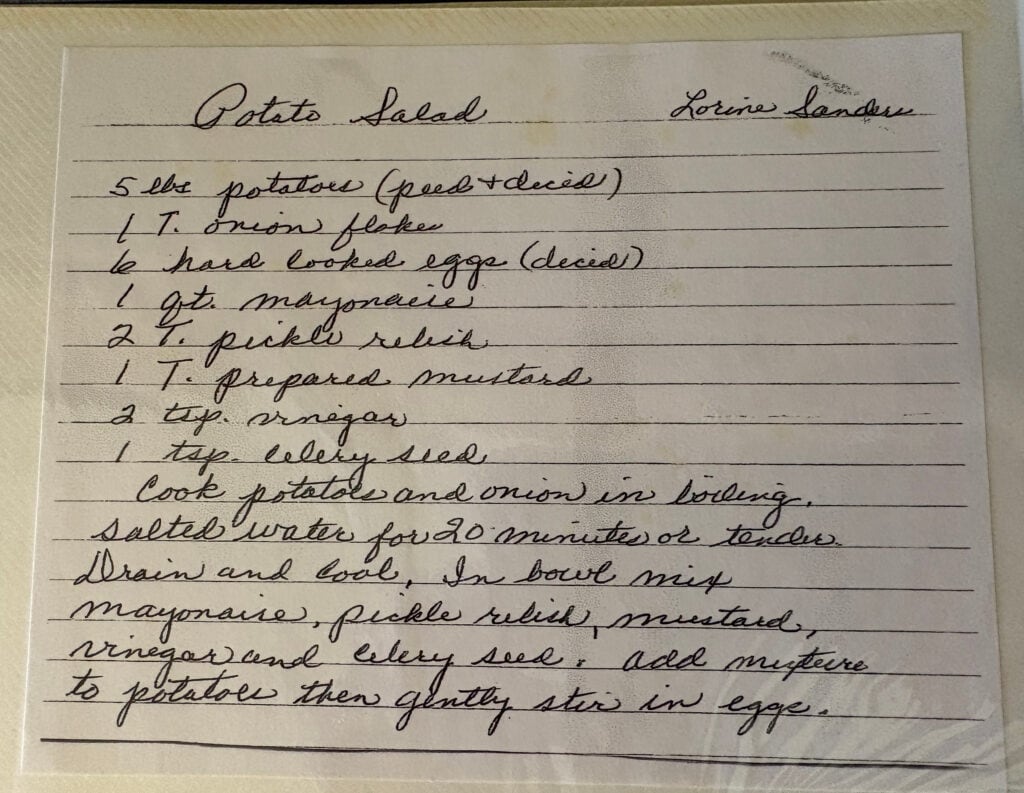 Potato Salad Lorine Sanders
5 lbs potatoes (peed + diced)
1 T. onion flakes
6 hard cooked eggs (diced)
1 qt. mayonaise
2 T. pickle relish
1 T. prepared mustard
2 tsp. vinegar
1 tsp. celery seed
Cook potatoes and onion in boiling,
salted water for 20 minutes or tender.
Drain and cool. In bowl mix
mayonaise, pickle relish, mustard,
vinegar and celery seed. add mixture
to potatoes then gently stir in eggs.